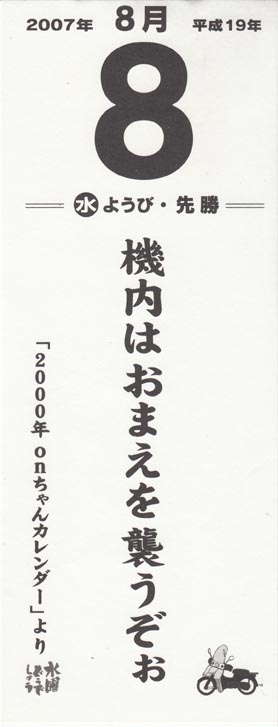 2007年 8月 平成19年
8
水ようび・先勝
機内はおまえを襲うぞぉ
「2000年 onちゃんカレンダー」より
水曜どうでしょう